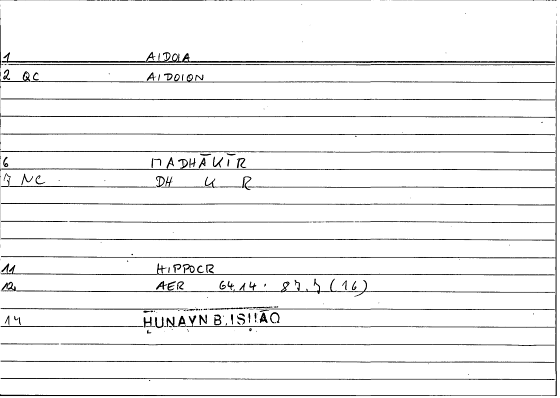 1 AIDOIA
2 QC AIDOION
6 MADHĀKĪR
7 NC DH K R
11 HIPPOCR
12 AER 64,14 · 87,5 (16)
14 ḤUNAYN B. ISḤĀQ